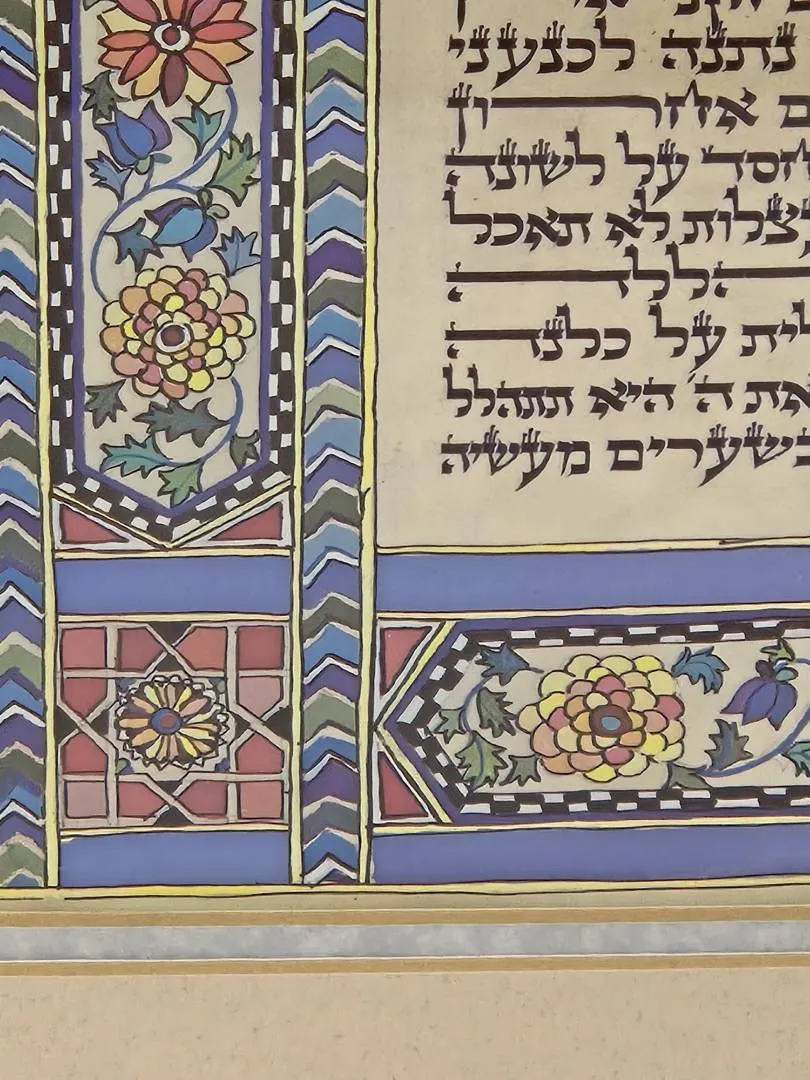 נתנה לכנעני
ם אחרון
חסד על לשונה
עצלות לא תאכל
הללה
לית על כלנה
את ה׳ היא תתהלל
בשערים מעשיה